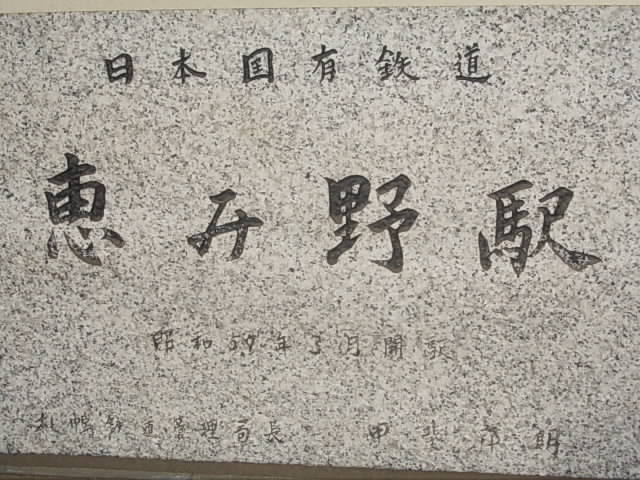 日本国有鉄道
恵み野駅
昭和57年3月開駅
札幌鉄道管理局長 甲